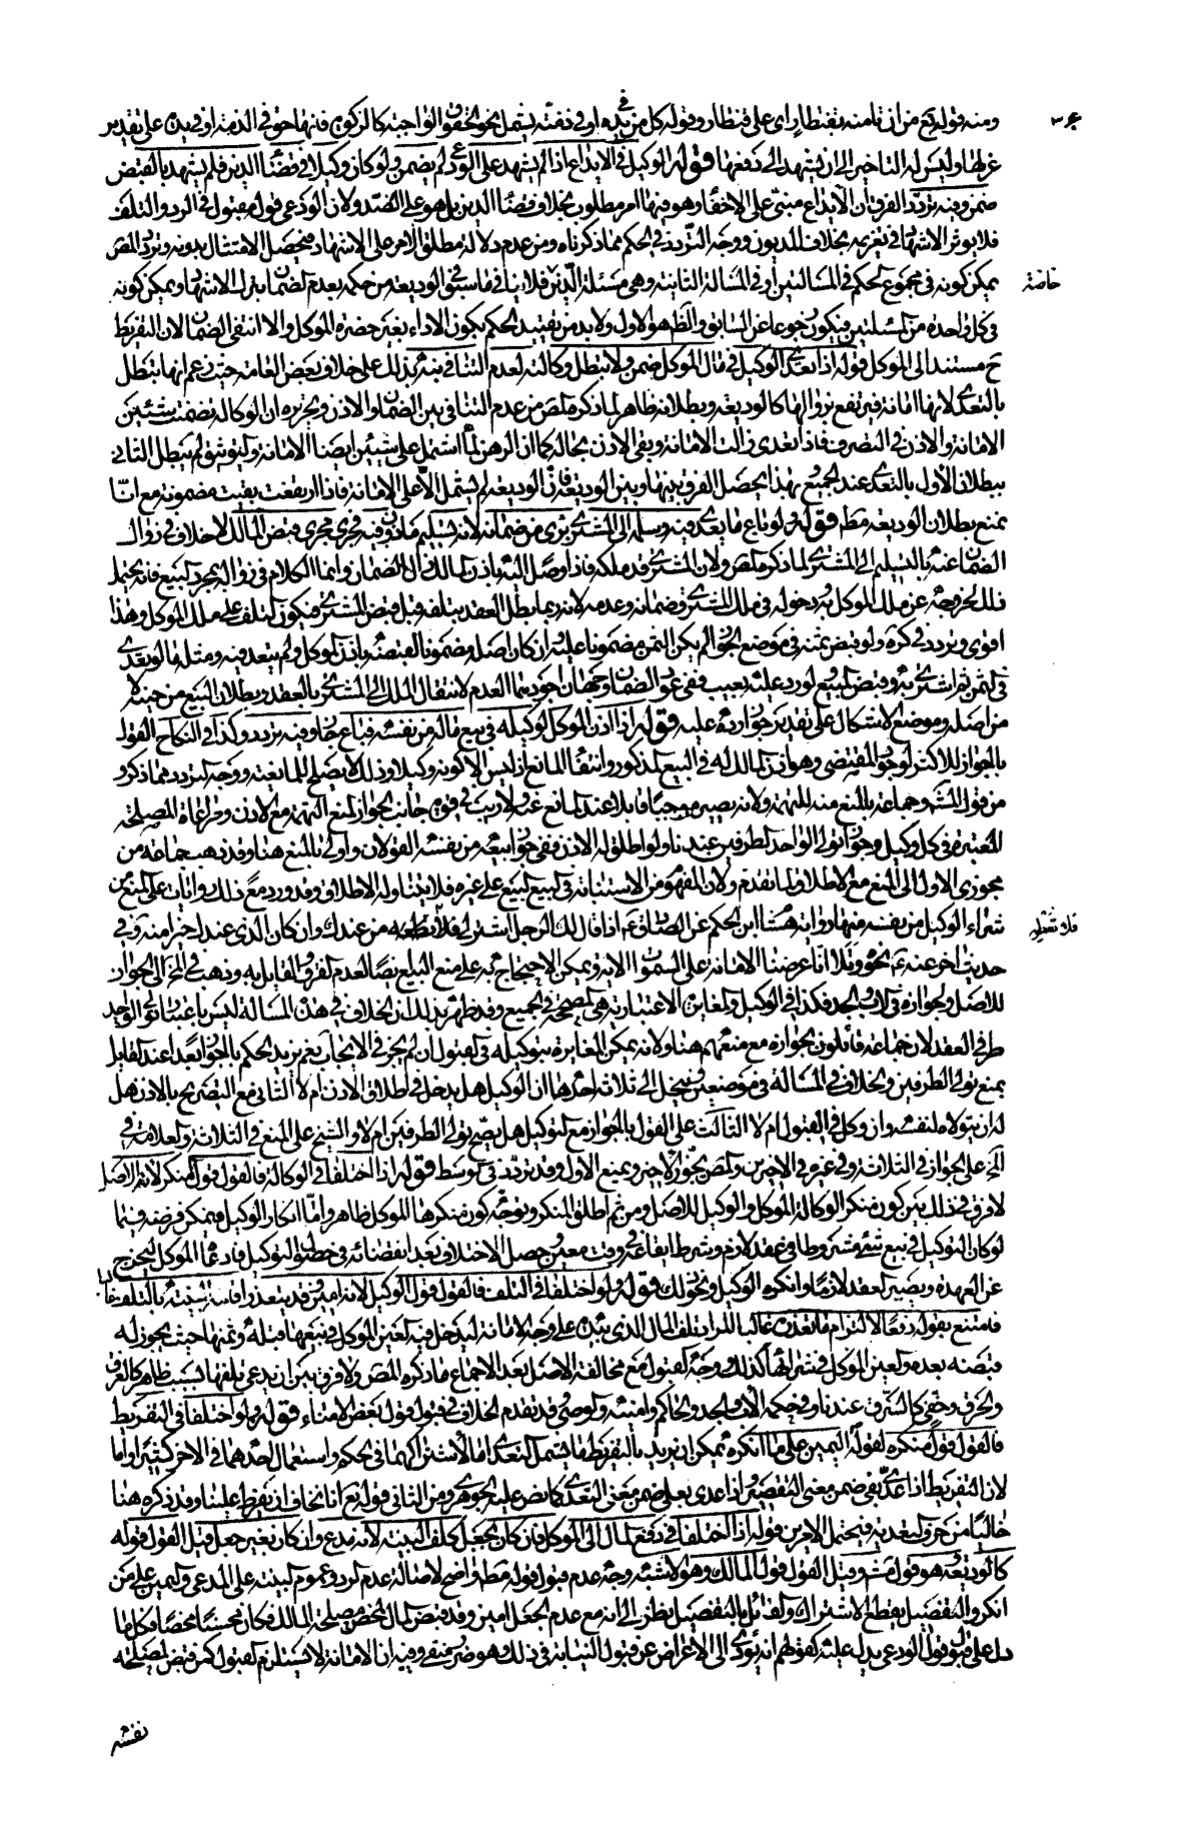 ومنه قوله تع من ان تامنه بقنطار اى على قنطار وقوله كل من فى يده او فى ذمته يشمل نحو الحقوق الواجبة كالزكوة فانها حق فى الذمة او فى يده على تقدير
عزلها وليس له التاخير الى ان يشهد الى دفعها قوله الوكيل فى الايداع اذا لم يشهد على الودعى لم يضمن ولو كان وكيلا فى قضاء الدين فلم يشهد بالقبض
ضمن وفيه تردد الفرق ان الايداع مبنى على الاخفاء وهو فيها امر مطلوب بخلاف قضاء الدين بل هو على الضد ولان الودعى قوله مقبول فى الرد والتلف
فلا يؤثر الاشهاد فى تغريمه بخلاف المديون ووجه التردد فى الحكم مما ذكرناه ومن عدم دلالة مطلق الامر على الاشهاد فيحصل الامتثال بدونه وتردد المص
يمكن كونه فى مجموع الحكم فى المسالتين او فى المسالة الثانية وهى مسئلة الدين فلا ينافى ما سبق فى الوديعة من حكمه بعدم الضمان بترك الاشهاد ويمكن كونه
خاصة
فى كل واحدة من المسئلتين فيكون رجوعا عن السابق والظ هو الاول ولا بد من تقييد الحكم بكون الاداء بغير حضرة الموكل والا انتفى الضمان لان التفريط
ح مستند الى الموكل قوله اذا تعدى الوكيل فى مال الموكل ضمن ولا تبطل وكالته لعدم التنافى نبه بذلك على خلاف بعض العامة حيث زعم انها تبطل
بالتعدى لانها امانة فيرتفع بزوالها كالوديعة وبطلانه ظاهر لما ذكره المص من عدم التنافى بين الضمان والاذن وتحريره ان الوكالة تضمنت شيئين
الامانة والاذن فى التصرف فاذا تعدى زالت الامانة وبقى الاذن بحاله كما ان الرهن لما اشتمل على شيئين ايضا الامانة والتوثق لم يبطل الثانى
ببطلان الاول بالتعدى عند الجميع بهذا يحصل الفرق بينها وبين الوديعة فان الوديعة لم تشتمل الا على الامانة فاذا ارتفعت بقيت مضمونة مع انا
نمنع بطلان الوديعة مط قوله ولو باع ما تعدى فيه وسلمه الى المشترى برئ من ضمانه لانه تسليم ماذون فيه فجرى مجرى قبض المالك لا خلاف فى زوال
الضمان عنه بالتسليم الى المشترى لما ذكره المص ولان المشترى قد ملكه فاذا وصل اليه باذن المالك زال الضمان وانما الكلام فى زواله بمجرد البيع فانه يحتمل
ذلك لخروجه عن ملك الموكل به ودخوله فى ملك المشترى وضمانه وعدمه لانه ربما يبطل العقد بتلفه قبل قبض المشترى فيكون التلف على ملك الموكل وهذا
اقوى وتردد فى كره ولو قبض ثمنه فى موضع الجواز لم يكن الثمن مضمونا عليه وان كان اصله مضمونا لقبضه باذن الموكل ولم يتعد فيه ومثله ما لو تعدى
فى الثمن ثم اشترى به وقبض المبيع لو رد عليه بعيب ففى عود الضمان وجهان اجودهما العدم لانتقال الملك الى المشترى بالعقد وبطلان البيع من حينه لا
من اصله وموضع الاشكال على تقدير جواز رده عليه قوله اذا اذن الموكل لوكيله فى بيع ماله من نفسه فباع جاز وفيه تردد وكذا فى النكاح القول
بالجواز للاكثر لوجود المقتضى وهو اذن المالك له فى البيع المذكور وانتفاء المانع اذ ليس الا كونه وكيلا وذلك لا يصلح للمانعية ووجه التردد مما ذكر و
من قول الشيخ وجماعة بالمنع منه للتهمة ولانه يصير موجبا قابلا عند المانع عنه ولا ريب فى قوة جانب الجواز لمنع التهمة مع الاذن ومراعاة المصلحة
المعتبرة فى كل وكيل وجواز تولى الواحد الطرفين عندنا ولو اطلق له الاذن ففى جواز بيعه من نفسه القولان واولى بالمنع هنا وقد ذهب جماعة من
مجوزى الاول الى المنع مع الاطلاق لما تقدم ولان المفهوم من الاستنابة فى البيع البيع على غيره فلا يتناوله الاطلاق وقد ورد مع ذلك روايات على المنع من
شراء الوكيل من نفسه فمنها رواية هشام ابن الحكم عن الصادق ع اذا قال لك الرجل اشتر لى فلا تعطه من عندك وان كان الذى عندك خيرا منه وفى
فلا تعطه
حديث اخر عنه ع نحوه وتلا انا عرضنا الامانة على السموات الاية ويمكن الاحتجاج به على منع البايع نصا لعدم الفرق والقايل به وذهب فى المخ الى الجواز
للاصل ولجوازه فى الاب والجد فكذا فى الوكيل والمغايرة الاعتبارية هى المصححة فى الجميع وقد ظهر بذلك ان الخلاف فى هذه المسالة ليس باعتبار تولى الواحد
طرفى العقد لان جماعة قائلون بجوازه مع منعهم هنا ولانه يمكن المغايرة بتوكيله فى القبول ان لم يجز فى الايجاب نعم يزيد الحكم بالجواز بعدا عند القايل
بمنع تولى الطرفين والخلاف فى المسالة فى موضعين ينحل الى ثلاثة احدها ان الوكيل هل يدخل فى اطلاق الاذن ام لا الثانى مع التصريح بالاذن هل
له ان يتولاه لنفسه وان وكل فى القبول ام لا الثالث على القول بالجواز مع التوكيل هل يصح تولى الطرفين ام لا والشيخ على المنع فى الثلاثة والعلامة فى
المخ على الجواز فى الثلاثة وفى غيره فى الاخيرين والمص يجوز الاخير ويمنع الاول وقد تردد فى الوسط قوله اذا اختلفا فى الوكالة فالقول قول المنكر لانه الاصل
لا فرق فى ذلك بين كون منكر الوكالة الموكل والوكيل للاصل ومن ثم اطلق المنكر وتوجه كون منكرها الموكل ظاهر واما انكار الوكيل فيمكن فرضه فيما
لو كان التوكيل فى بيع شئ مشروطا فى عقد لازم وشرط ايقاعه فى وقت معين وحصل الاختلاف بعد انقضائه فى حصول التوكيل فادعاها الموكل ليخرج
عن العهدة ويصير العقد لازما وانكره الوكيل ونحو ذلك قوله ولو اختلفا فى التلف فالقول قول الوكيل لانه امين وقد يتعذر اقامة البينة بالتلف غالبا
فاقتنع بقوله دفعا لالتزام ما تعذر غالبا المراد تلف المال الذى بيده على وجه الامانة ليدخل فيه العين الموكل فى بيعها قبله وثمنها حيث يجوز له
قبضه بعده والعين الموكل فى شرائها كذلك ووجه القبول مع مخالفة الاصل بعد الاجماع ما ذكره المص ولا فرق بين ان يدعى تلفها بسبب ظاهر كالغرق
والحرق وخفى كالسرق عندنا وفى حكمه الاب والجد والحاكم وامينه والوصى وقد تقدم الخلاف فى قبول قول بعض الامناء قوله ولو اختلفا فى التفريط
فالقول قول منكره لقوله ع اليمين على ما انكره يمكن ان يريد بالتفريط ما يشمل التعدى اما لاشتراكهما فى حكمه واستعمال احدهما فى الاخر كثيرا واما
لان التفريط اذا عدى بفى ضمن معنى التقصير واذا عدى بعلى ضمن معنى التعدى كما نص عليه الجوهرى ومن الثانى قوله تع انا نخاف ان يفرط علينا وقد ذكره هنا
خاليا من حرف التعدية فيحتمل الامرين قوله اذا اختلفا فى دفع المال الى الموكل فان كان بجعل كلف البينة لانه مدع وان كان بغير جعل قيل القول قوله
كالوديعة وهو قول مشهور وقيل القول قول المالك وهو الاشبه وجه عدم قبول قوله مط واضح لاصالة عدم الرد وعموم البينة على المدعى واليمين على من
انكر والتفصيل يقطع الاشتراك والقائل بالتفصيل نظر الى انه مع عدم الجعل امين وقد قبض المال لمحض مصلحة المالك فكان محسنا محضا فكل ما
دل على قبول قول الودعى يدل عليه كقولهم انه يؤدى الى الاعراض عن قبول النيابة فى ذلك وهو ضرر منفى وفيه ان الامانة لا تستلزم القبول كمن قبض لمصلحة
نفسه